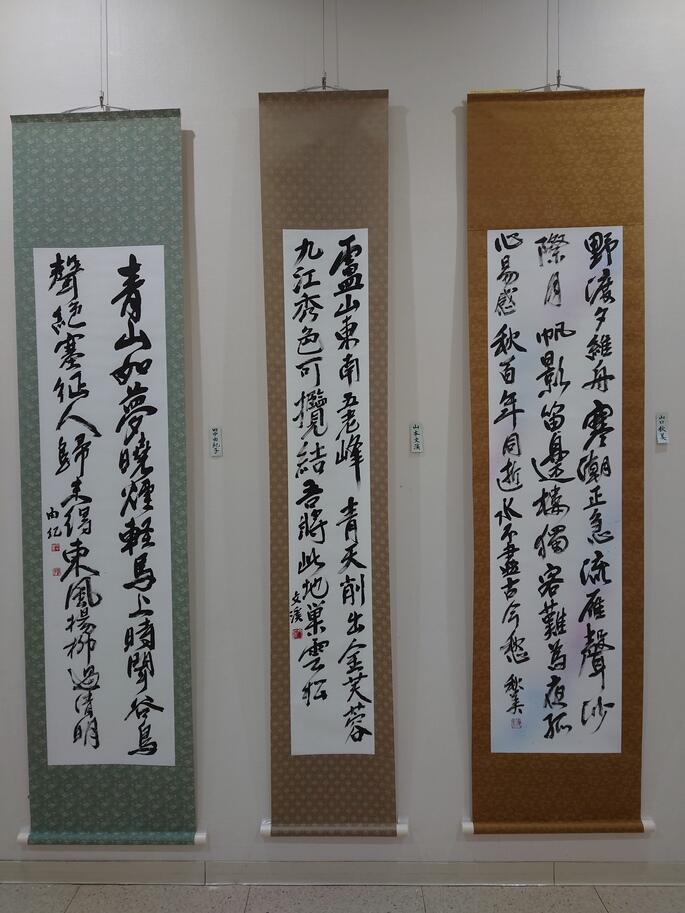 野渡夕維舟寒潮正急流雁聲沙
際月帆影笛邊樓獨客難為夜孤
心易感秋百年同逝水不盡古今愁
秋美
山口秋美
廬山東南五老峰青天削出金芙蓉
九江秀色可攬結吾將此地巢雲松
文溪
山本文溪
青山如夢曉煙軽馬上時聞谷鳥
聲絶塞征人歸未得東風楊柳過清明
由紀
田中由紀子